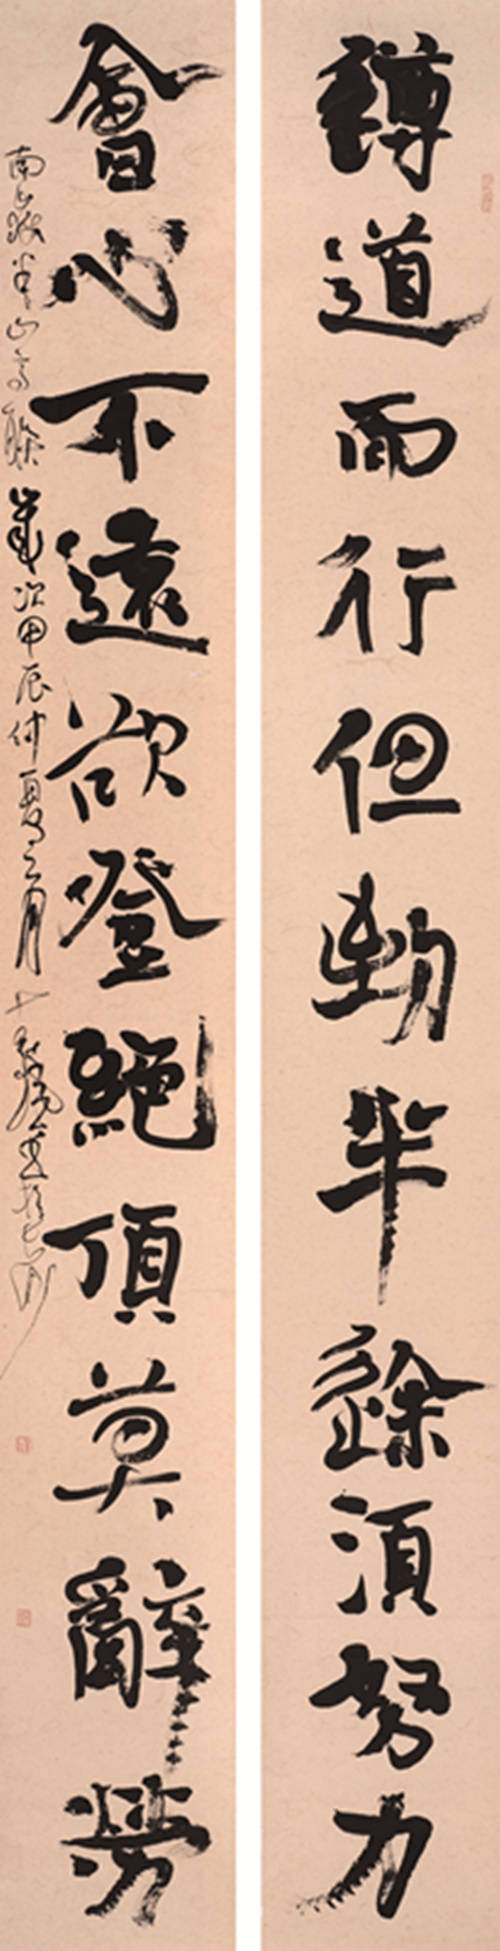 遵道而行但到半途須努力
會心不遠欲登絕頂莫辭勞
南嶽半山亭聯歲次甲辰仲夏之月